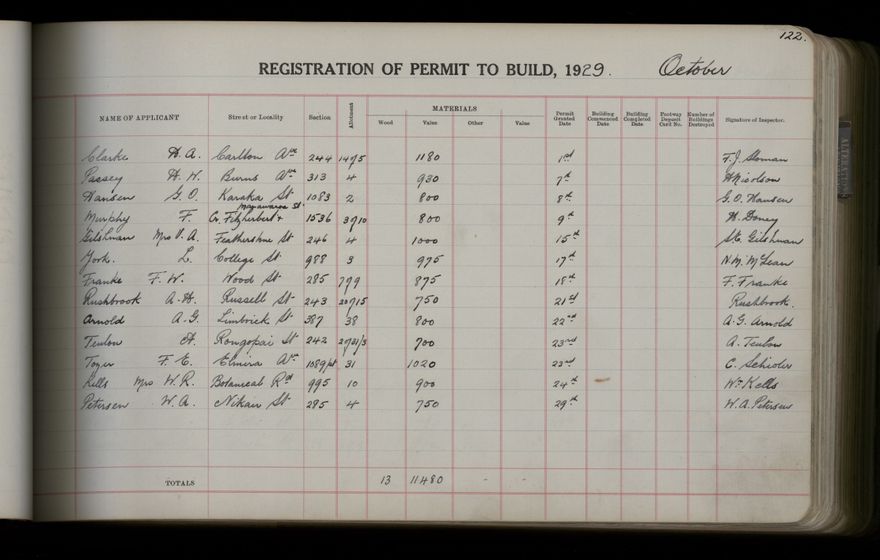 122.
REGISTRATION OF PERMIT TO BUILD, 1929. October
NAME OF APPLICANT Street or Locality Section Allotment MATERIALS Wood Value Other Value Permit Granted Date Building Commenced Date Building Completed Date Footway Deposit Card No. Number of Buildings Destroyed Signature of Inspector.
Clarke H. A. Carlton Ave 244 1180 1st F. J. Sloman
Passey H. W. Burns Ave 313 4 930 7th H Nicolson
Hansen G. O. Karaka St 1083 2 800 8th G. O. Hansen
Murphy F. Cr. Fitzherbert & Manawaroa St 1536 800 9th H. Doney
Gilshnan Mrs V. A. Featherstone St 246 4 1000 15th Gilshnan
York. L. College St 988 3 975 17th N. M. McLean
Franke F. W. Wood St 285 875 18th F. Franke
Rushbrook A. H. Russell St 243 750 21st Rushbrook.
Arnold A. G. Limbrick St 387 38 800 22nd A. G. Arnold
Tenlon A. Rongopai St 242 700 23rd A. Tenlon
Toyer F. E. Elmira Ave 1089/pt 31 1020 23rd C. Schioler
Kells Mrs W. R. Botanical Rd 995 10 900 24th Wm Kells
Petersen W. A. Nikau St 285 4 750 29th W. A. Petersen
TOTALS 13 11480 - -